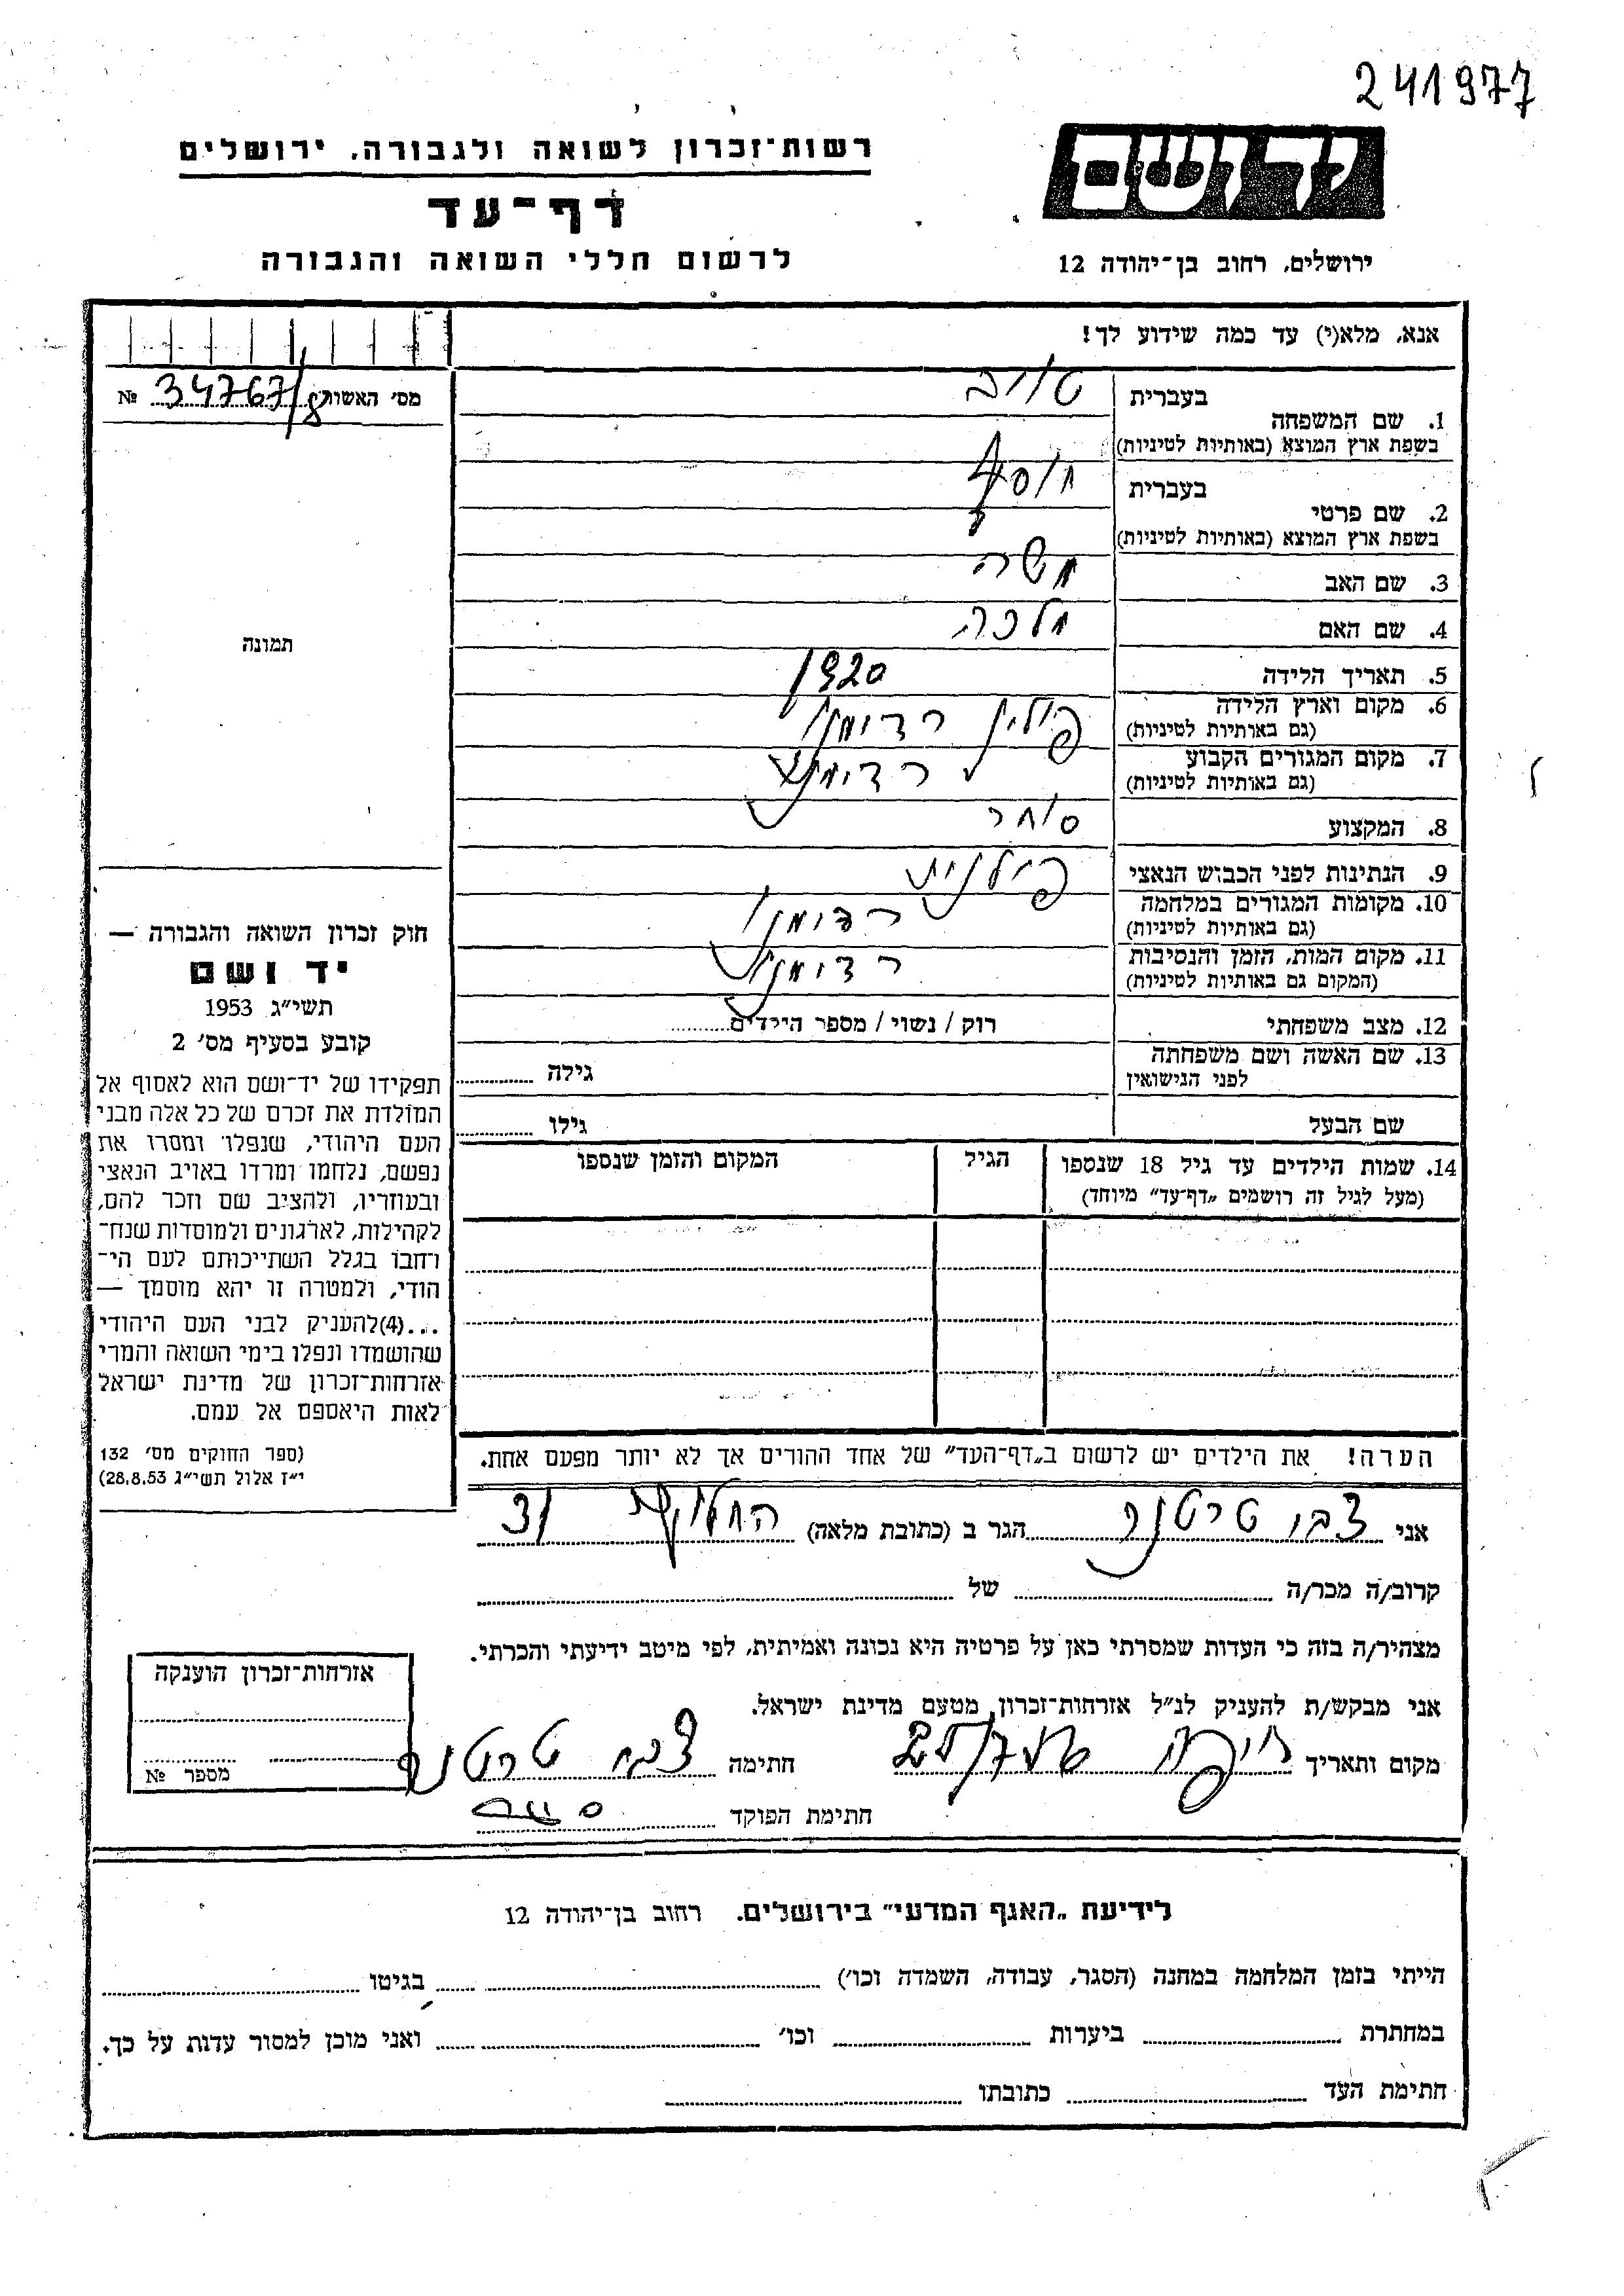 241977
יד ושם
רשות־זכרון לשואה ולגבורה. ירושלים
דף־עד
לרשום חללי השואה והגבורה
ירושלים, רחוב בן־יהודה 12
אנא, מלא(י) עד כמה שידוע לך!
מס׳ האשור 34767/8 №
1. שם המשפחה בעברית טוב
בשפת ארץ המוצא (באותיות לטיניות)
2. שם פרטי בעברית יוסף
בשפת ארץ המוצא (באותיות לטיניות)
3. שם האב משה
4. שם האם מלכה
5. תאריך הלידה 1920
6. מקום וארץ הלידה פולין
(גם באותיות לטיניות)
7. מקום המגורים הקבוע
(גם באותיות לטיניות)
8. המקצוע סוחר
9. הנתינות לפני הכבוש הנאצי פולנית
10. מקומות המגורים במלחמה
(גם באותיות לטיניות)
11. מקום המות, הזמן והנסיבות
(המקום גם באותיות לטיניות)
12. מצב משפחתי רוק / נשוי / מספר הילדים
13. שם האשה ושם משפחתה גילה
לפני הנישואין
שם הבעל גילו
14. שמות הילדים עד גיל 18 שנספו הגיל המקום והזמן שנספו
(מעל לגיל זה רושמים „דף־עד״ מיוחד)
הערה! את הילדים יש לרשום ב„דף־העד״ של אחד ההורים אך לא יותר מפעם אחת.
תמונה
חוק זכרון השואה והגבורה —
יד ושם
תשי״ג 1953
קובע בסעיף מס׳ 2
תפקידו של יד־ושם הוא לאסוף אל
המולדת את זכרם של כל אלה מבני
העם היהודי, שנפלו ומסרו את
נפשם, נלחמו ומרדו באויב הנאצי
ובעוזריו, ולהציב שם וזכר להם,
לקהילות, לארגונים ולמוסדות שנח־
רחבו בגלל השתייכותם לעם הי־
הודי, ולמטרה זו יהא מוסמך —
...(4)להעניק לבני העם היהודי
שהושמדו ונפלו בימי השואה והמרי
אזרחות־זכרון של מדינת ישראל
לאות היאספם אל עמם.
(ספר החוקים מס׳ 132
י״ז אלול תשי״ג 28.8.53)
אני צבי טרטנר הגר ב (כתובת מלאה) החלוץ 31
קרוב/ה מכר/ה של
מצהיר/ה בזה כי העדות שמסרתי כאן על פרטיה היא נכונה ואמיתית, לפי מיטב ידיעתי והכרתי.
אני מבקש/ת להעניק לנ״ל אזרחות־זכרון מטעם מדינת ישראל.
מקום ותאריך חיפה חתימה צבי טרטנר
חתימת הפוקד
אזרחות־זכרון הוענקה
מספר №
לידיעת „האגף המדעי״ בירושלים. רחוב בן־יהודה 12
הייתי בזמן המלחמה במחנה (הסגר, עבודה, השמדה וכו׳) בגיטו
במחתרת ביערות וכו׳ ואני מוכן למסור עדות על כך.
חתימת העד כתובתו